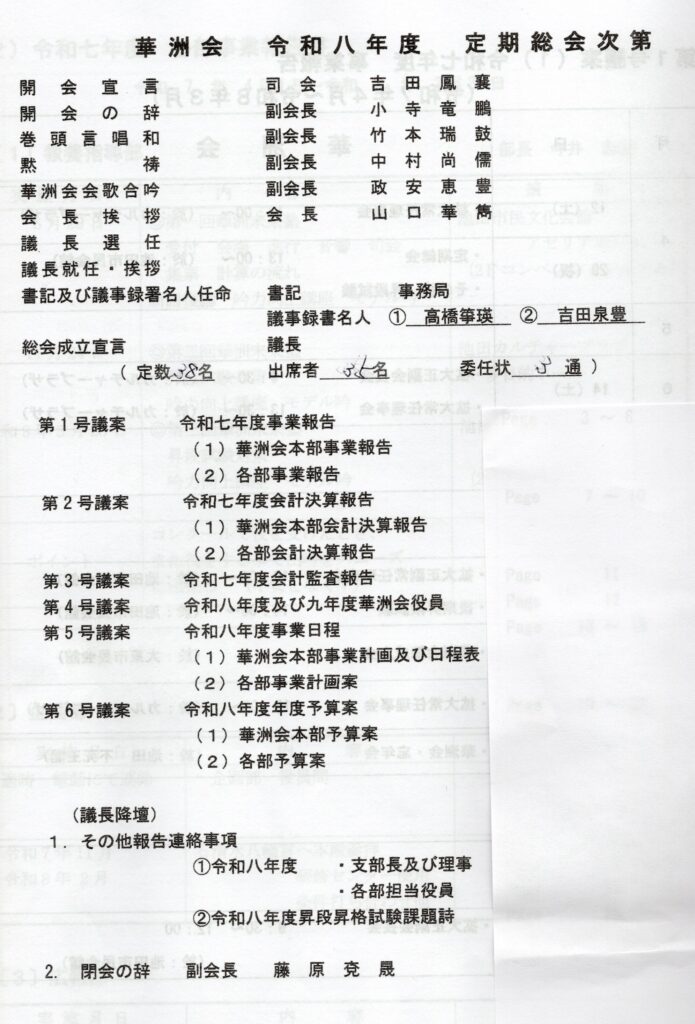 華洲会　令和八年度　定期総会次第
開会宣言　司会　吉田鳳襄
開会の辞　副会長　小寺竜鵬
巻頭言唱和　副会長　竹本瑞鼓
黙祷　副会長　中村尚儒
華洲会会歌合吟　副会長　政安恵豊
会長挨拶　会長　山口華雋
議長選任
議長就任・挨拶
書記及び議事録署名人任命　書記　事務局
議事録書名人　①高橋箏瑛　②吉田泉豊
総会成立宣言　議長
（定数38名　出席者　名　委任状　通）
第１号議案　令和七年度事業報告
（１）華洲会本部事業報告
（２）各部事業報告
第２号議案　令和七年度会計決算報告
（１）華洲会本部会計決算報告
（２）各部会計決算報告
第３号議案　令和七年度会計監査報告
第４号議案　令和八年度及び九年度華洲会役員
第５号議案　令和八年度事業日程
（１）華洲会本部事業計画及び日程表
（２）各部事業計画案
第６号議案　令和八年度年度予算案
（１）華洲会本部予算案
（２）各部予算案
（議長降壇）
１．その他報告連絡事項
①令和八年度　・支部長及び理事
・各部担当役員
②令和八年度昇段昇格試験課題詩
２．閉会の辞　副会長　藤原尭晟